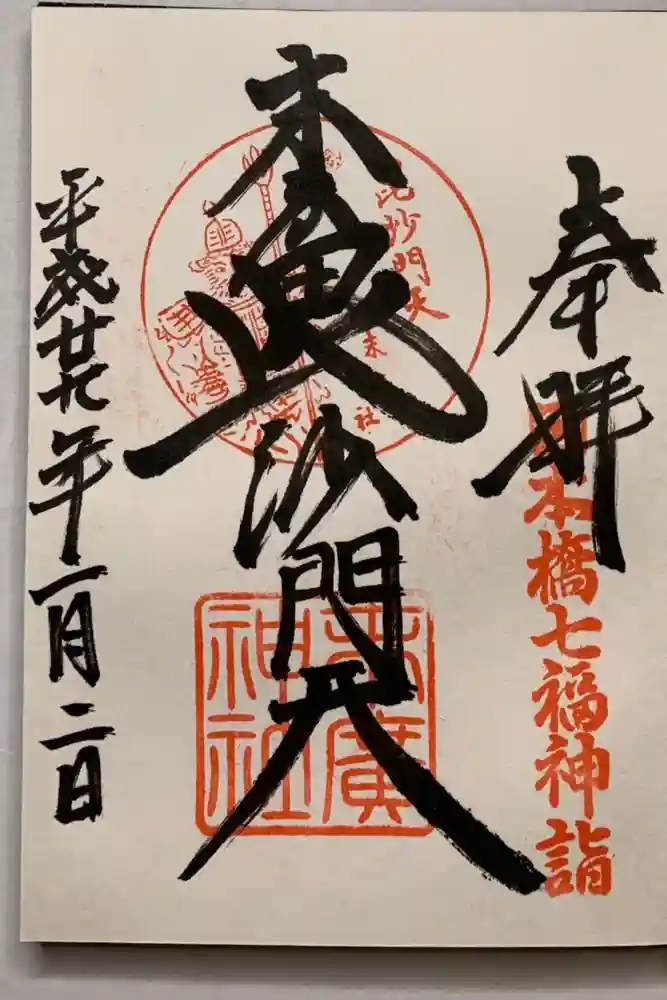 奉拝
日本橋七福神詣
末毘沙門天
毘沙門天
末
社
末廣
神社
平成廿九年一月二日